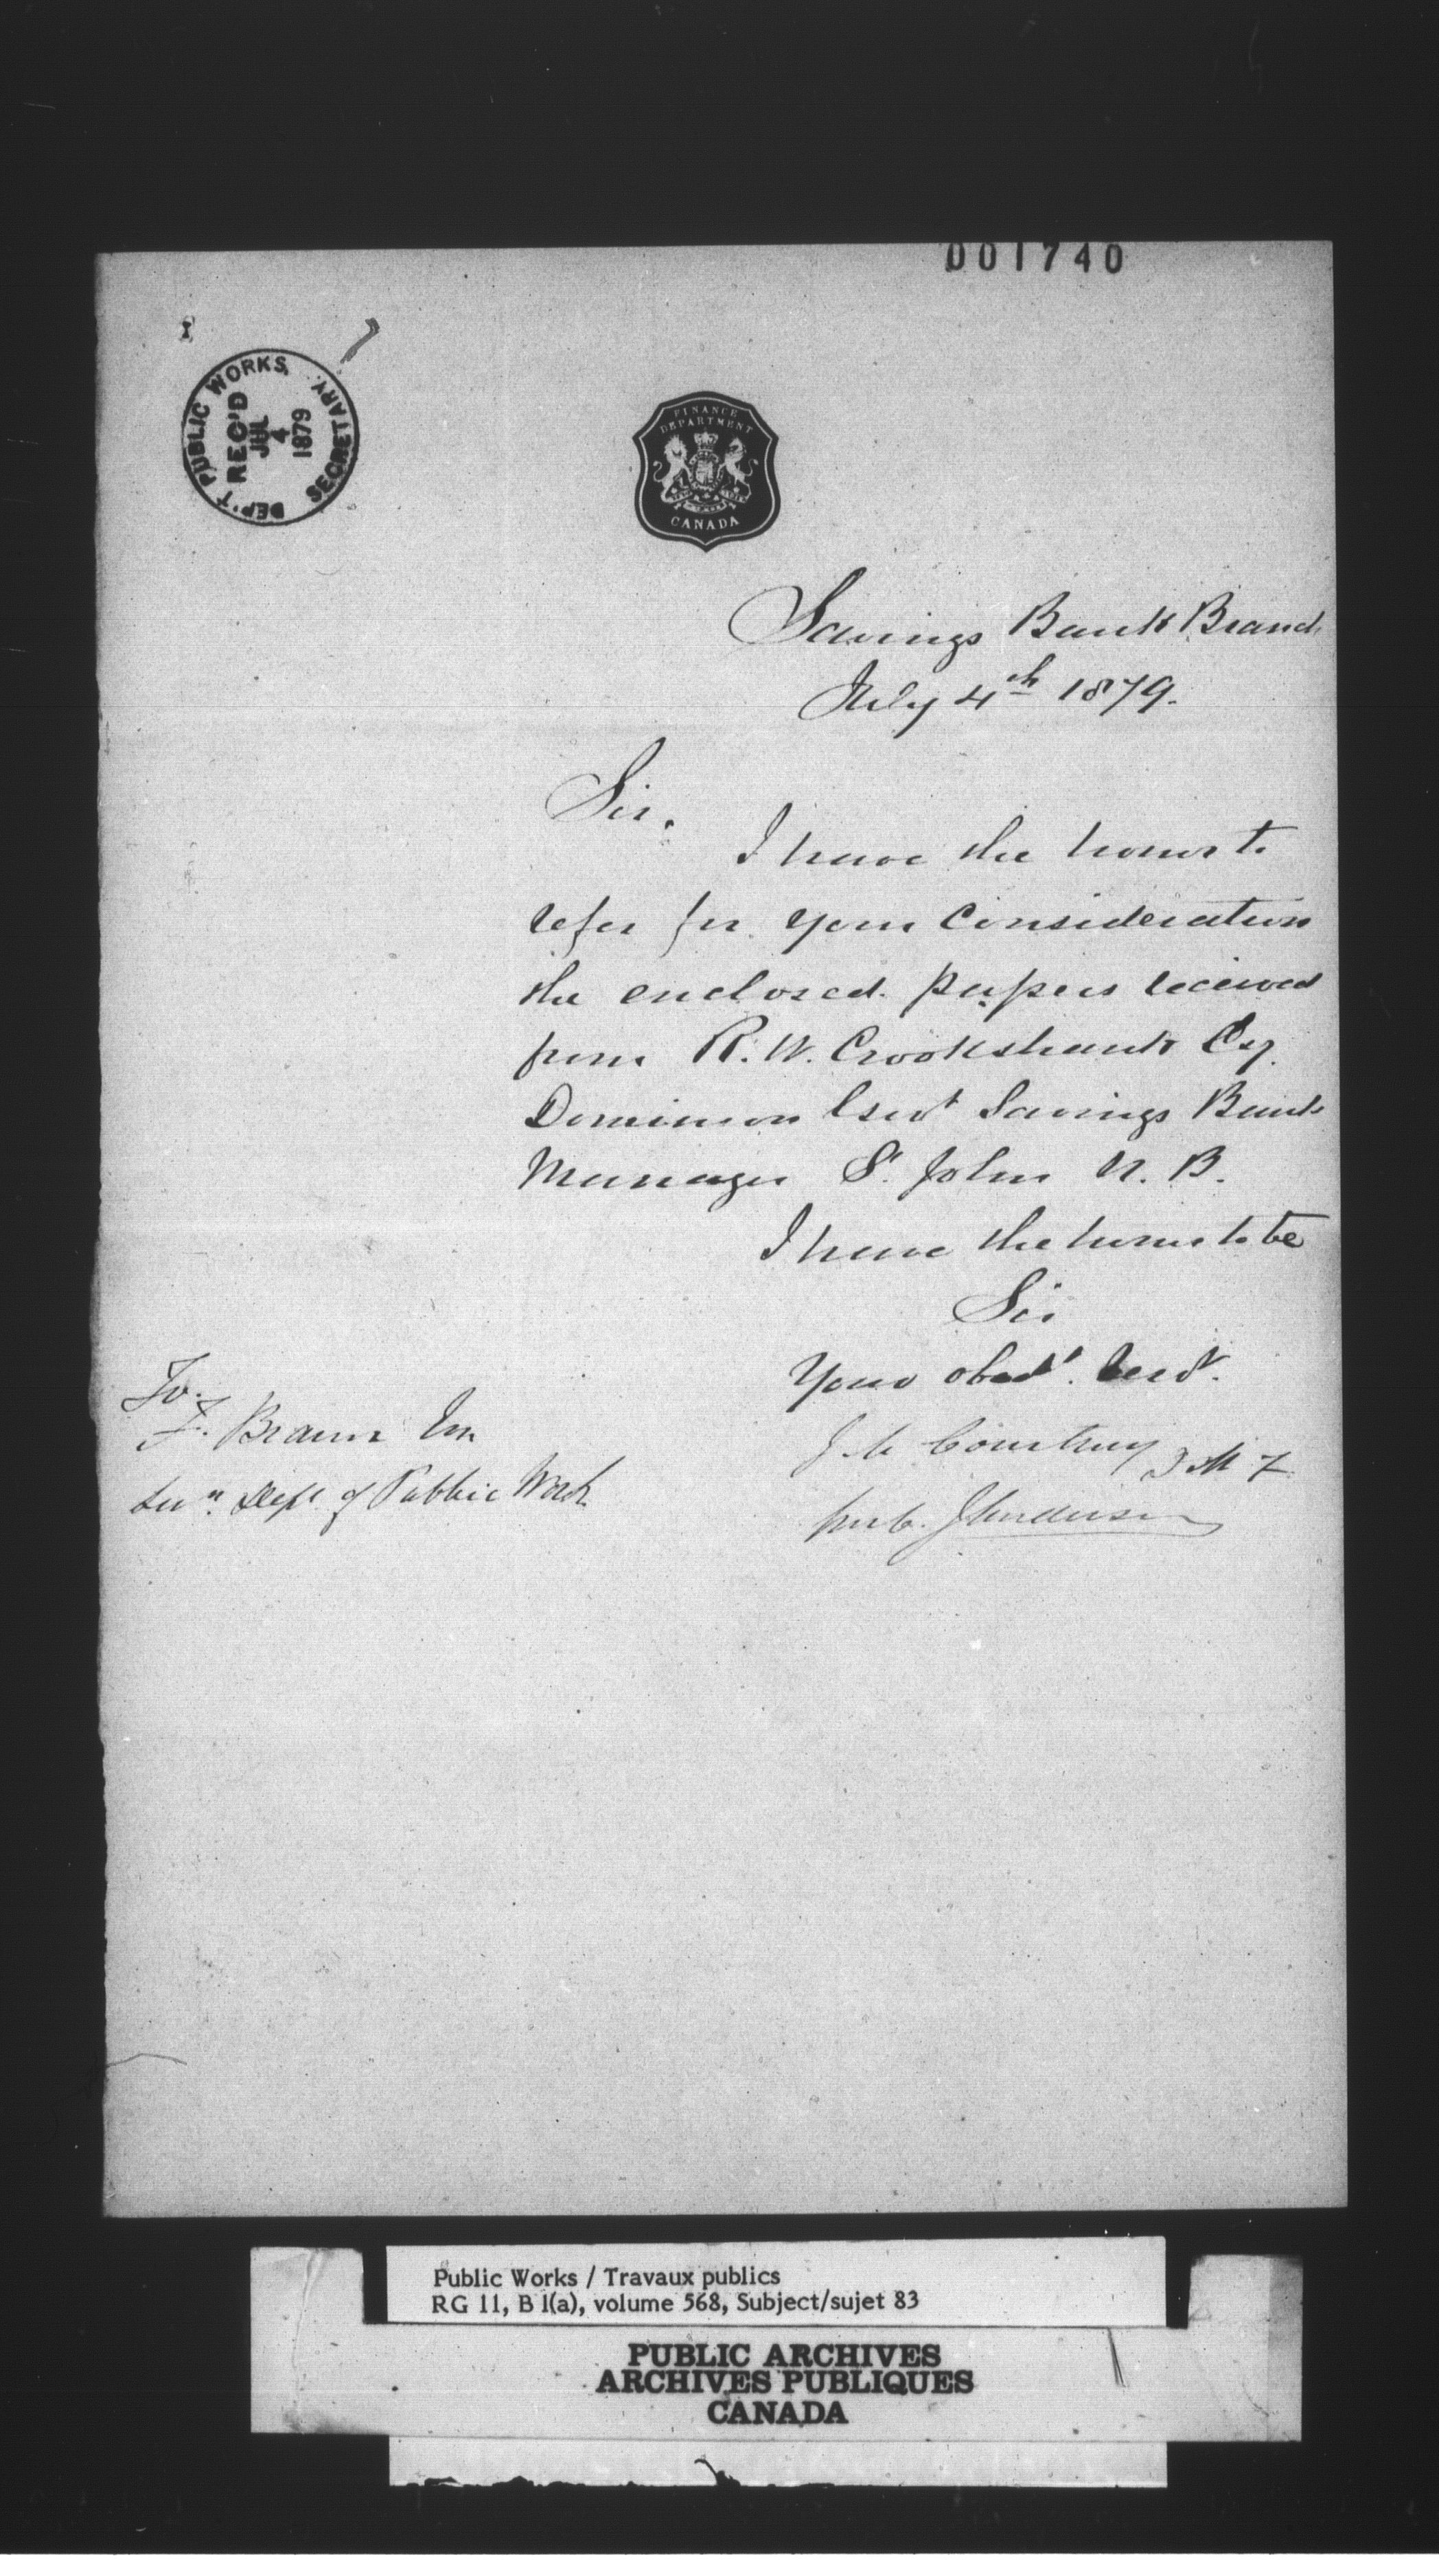 001740
DEP'T PUBLIC WORKS, SECRETARY.
REC'D
JUL
4
1879
FINANCE
DEPARTMENT
CANADA
Savings Bank Branch
July 4th 1879.
Sir,
I have the honor to
refer for your consideration
the enclosed papers received
from R. W. Crookshank Esq
Dominion Govt Savings Bank
Manager St. John N. B.
I have the honor to be
Sir
Your obedt. Servt.
J. M. Courtney D M F
per C. J. Anderson
To
F. Braun Esq
Secy. Dept of Public Works
Public Works / Travaux publics
RG 11, B 1(a), volume 568, Subject/sujet 83
PUBLIC ARCHIVES
ARCHIVES PUBLIQUES
CANADA